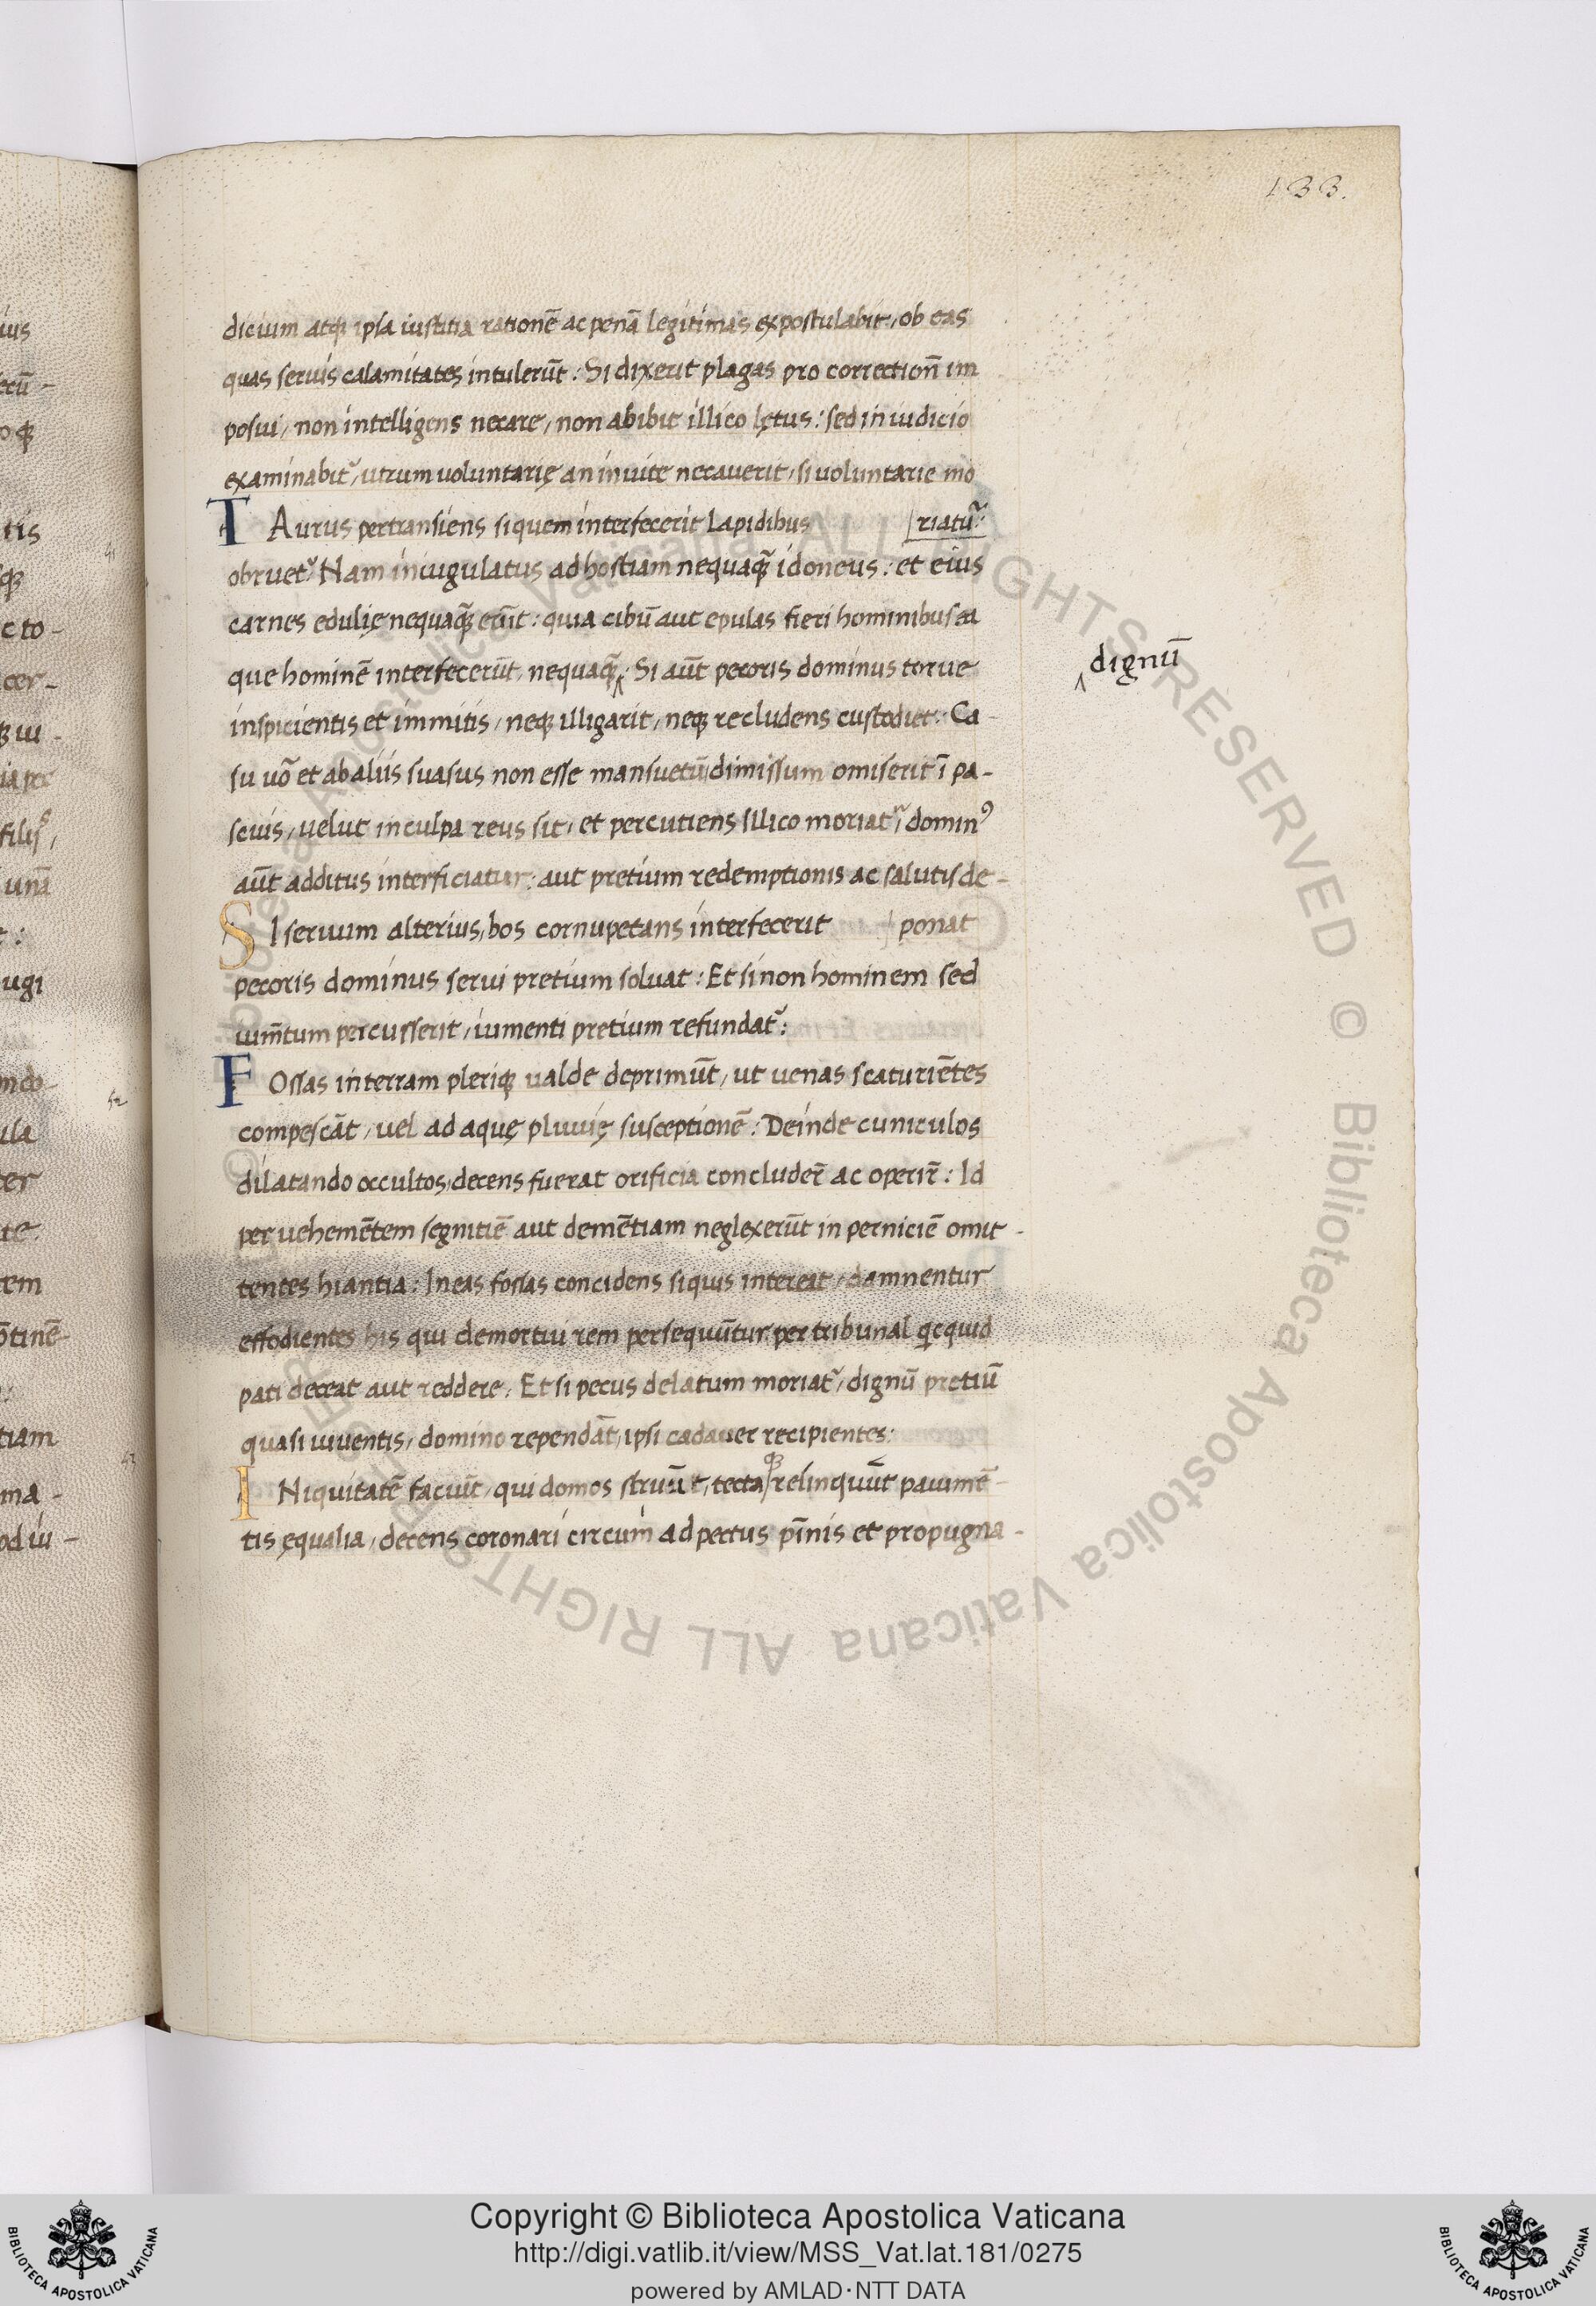 133.
dicium atq; ipsa iustitia rationē ac penā legitimas expostulabit, ob eas
quas seruis calamitates intulerūt: Si dixerit plagas pro correction̄ im
posui, non intelligens necare, non abibit illico lętus: sed in iudicio
examinabit᷑, utrum voluntarię an inuite necauerit, si uoluntarie mo
TAurus pertransiens si quem interfecerit Lapidibus riatu᷑:
obruet᷑: Nam in iugulatus ad hostiam nequaq̃ idoneus: et eius
carnes edulię nequaq̃ erūt: quia cibū aut epulas fieri hominibus ea
que hominē interfecerūt, nequaq̃ ʌ: Si aūt pecoris dominus torue
ʌ dignū
inspicientis et immitis, neq; illigarit, neq; recludens custodiet: Ca-
su uō et ab aliis suasus non esse mansuetū dimissum omiserit ī pa-
scuis, uelut in culpa reus sit, et percutiens illico moriat᷑, dominꝰ
aūt additus interficiatur: aut pretium redemptionis ac salutis de-
SI seruum alterius, bos cornupetans interfecerit ponat
pecoris dominus serui pretium soluat: Et si non hominem sed
ium̄tum percusserit, iumenti pretium refundat᷑:
FOssas in terram pleriq; ualde deprimūt, ut uenas scaturiētes
compescāt, uel ad aquę pluuię susceptionē: Deinde cuniculos
dilatando occultos, decens fuerat orificia concluder̄ ac operir̄: Id
per uehemētem segnitiē aut demētiam neglexerūt in perniciē omit-
tentes hiantia: In eas fossas concidens si quis intereat, damnentur
effodientes his qui demortui rem persequūtur per tribunal qcquid
pati deceat aut reddere. Et si pecus delatum moriat᷑, dignū pretiū
quasi uiuentis, domino rependāt, ipsi cadauer recipientes:
INiquitatē faciūt, qui domos struūt, tecta q; relinquūt pauimē-
tis ęqualia, decens coronari circum ad pectus pīnis et propugna-
Copyright © Biblioteca Apostolica Vaticana
http://digi.vatlib.it/view/MSS_Vat.lat.181/0275
powered by AMLAD·NTT DATA